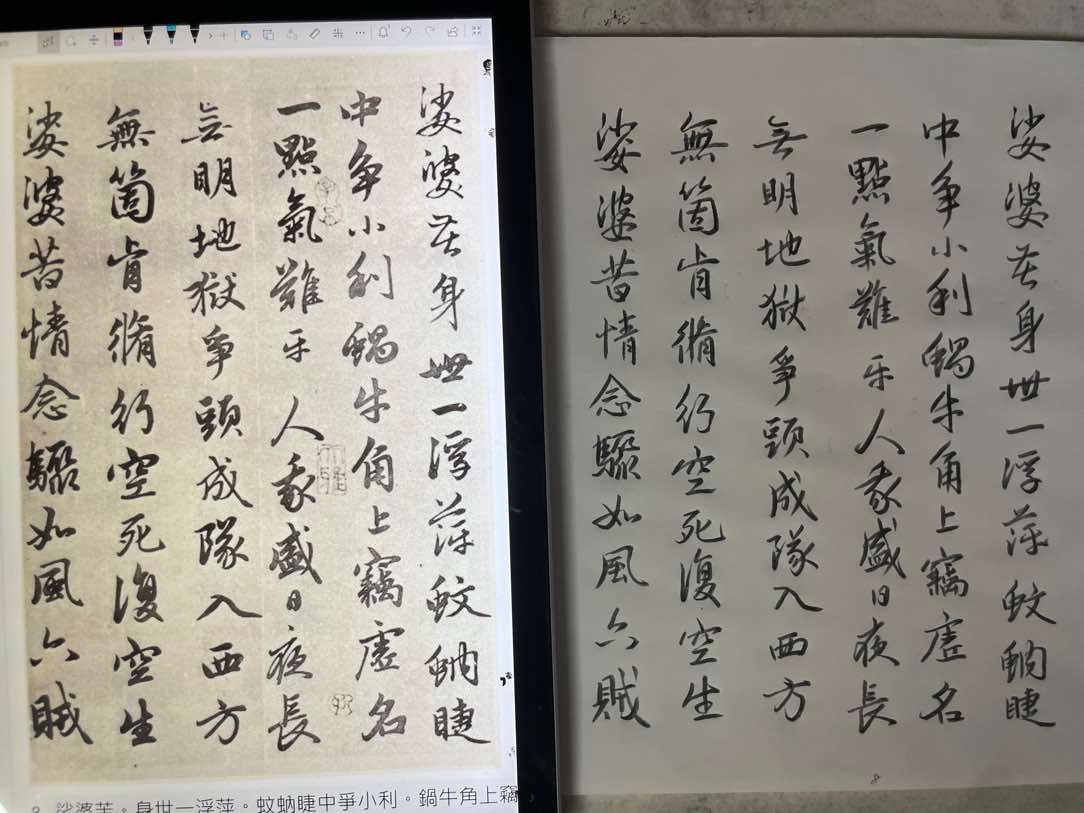 娑婆苦身世一浮萍蚊蚋睫
中爭小利蝸牛角上竊虛名
一點氣難平人我盛日夜長
無明地獄爭頭成隊入西方
無箇肯脩行空死復空生
娑婆苦情念驟如風六賊
娑婆苦。身世一浮萍。蚊蚋睫中爭小利。鍋牛角上竊
娑婆苦身世一浮萍蚊蚋睫
中爭小利蝸牛角上竊虛名
一點氣難平人我盛日夜長
無明地獄爭頭成隊入西方
無箇肯脩行空死復空生
娑婆苦情念驟如風六賊
8